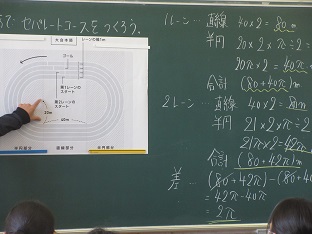 でセパレートコースをつくろう。
大会本部
レーンの幅1m
ゴール
第1レーンの
スタート
第2レーンの
スタート
20m
40m
半円部分
直線部分
半円部分
1レーン… 直線 40×2=80m
半円 20×2×π÷2=
20π×2=40π
合計 (80+40π)m
2レーン… 直線 40×2=80m
半円 21×2×π÷2
21π×2=42π
合計 (80+42π)m
差… (80+42π)-(80+40
=42π-40π
=2π